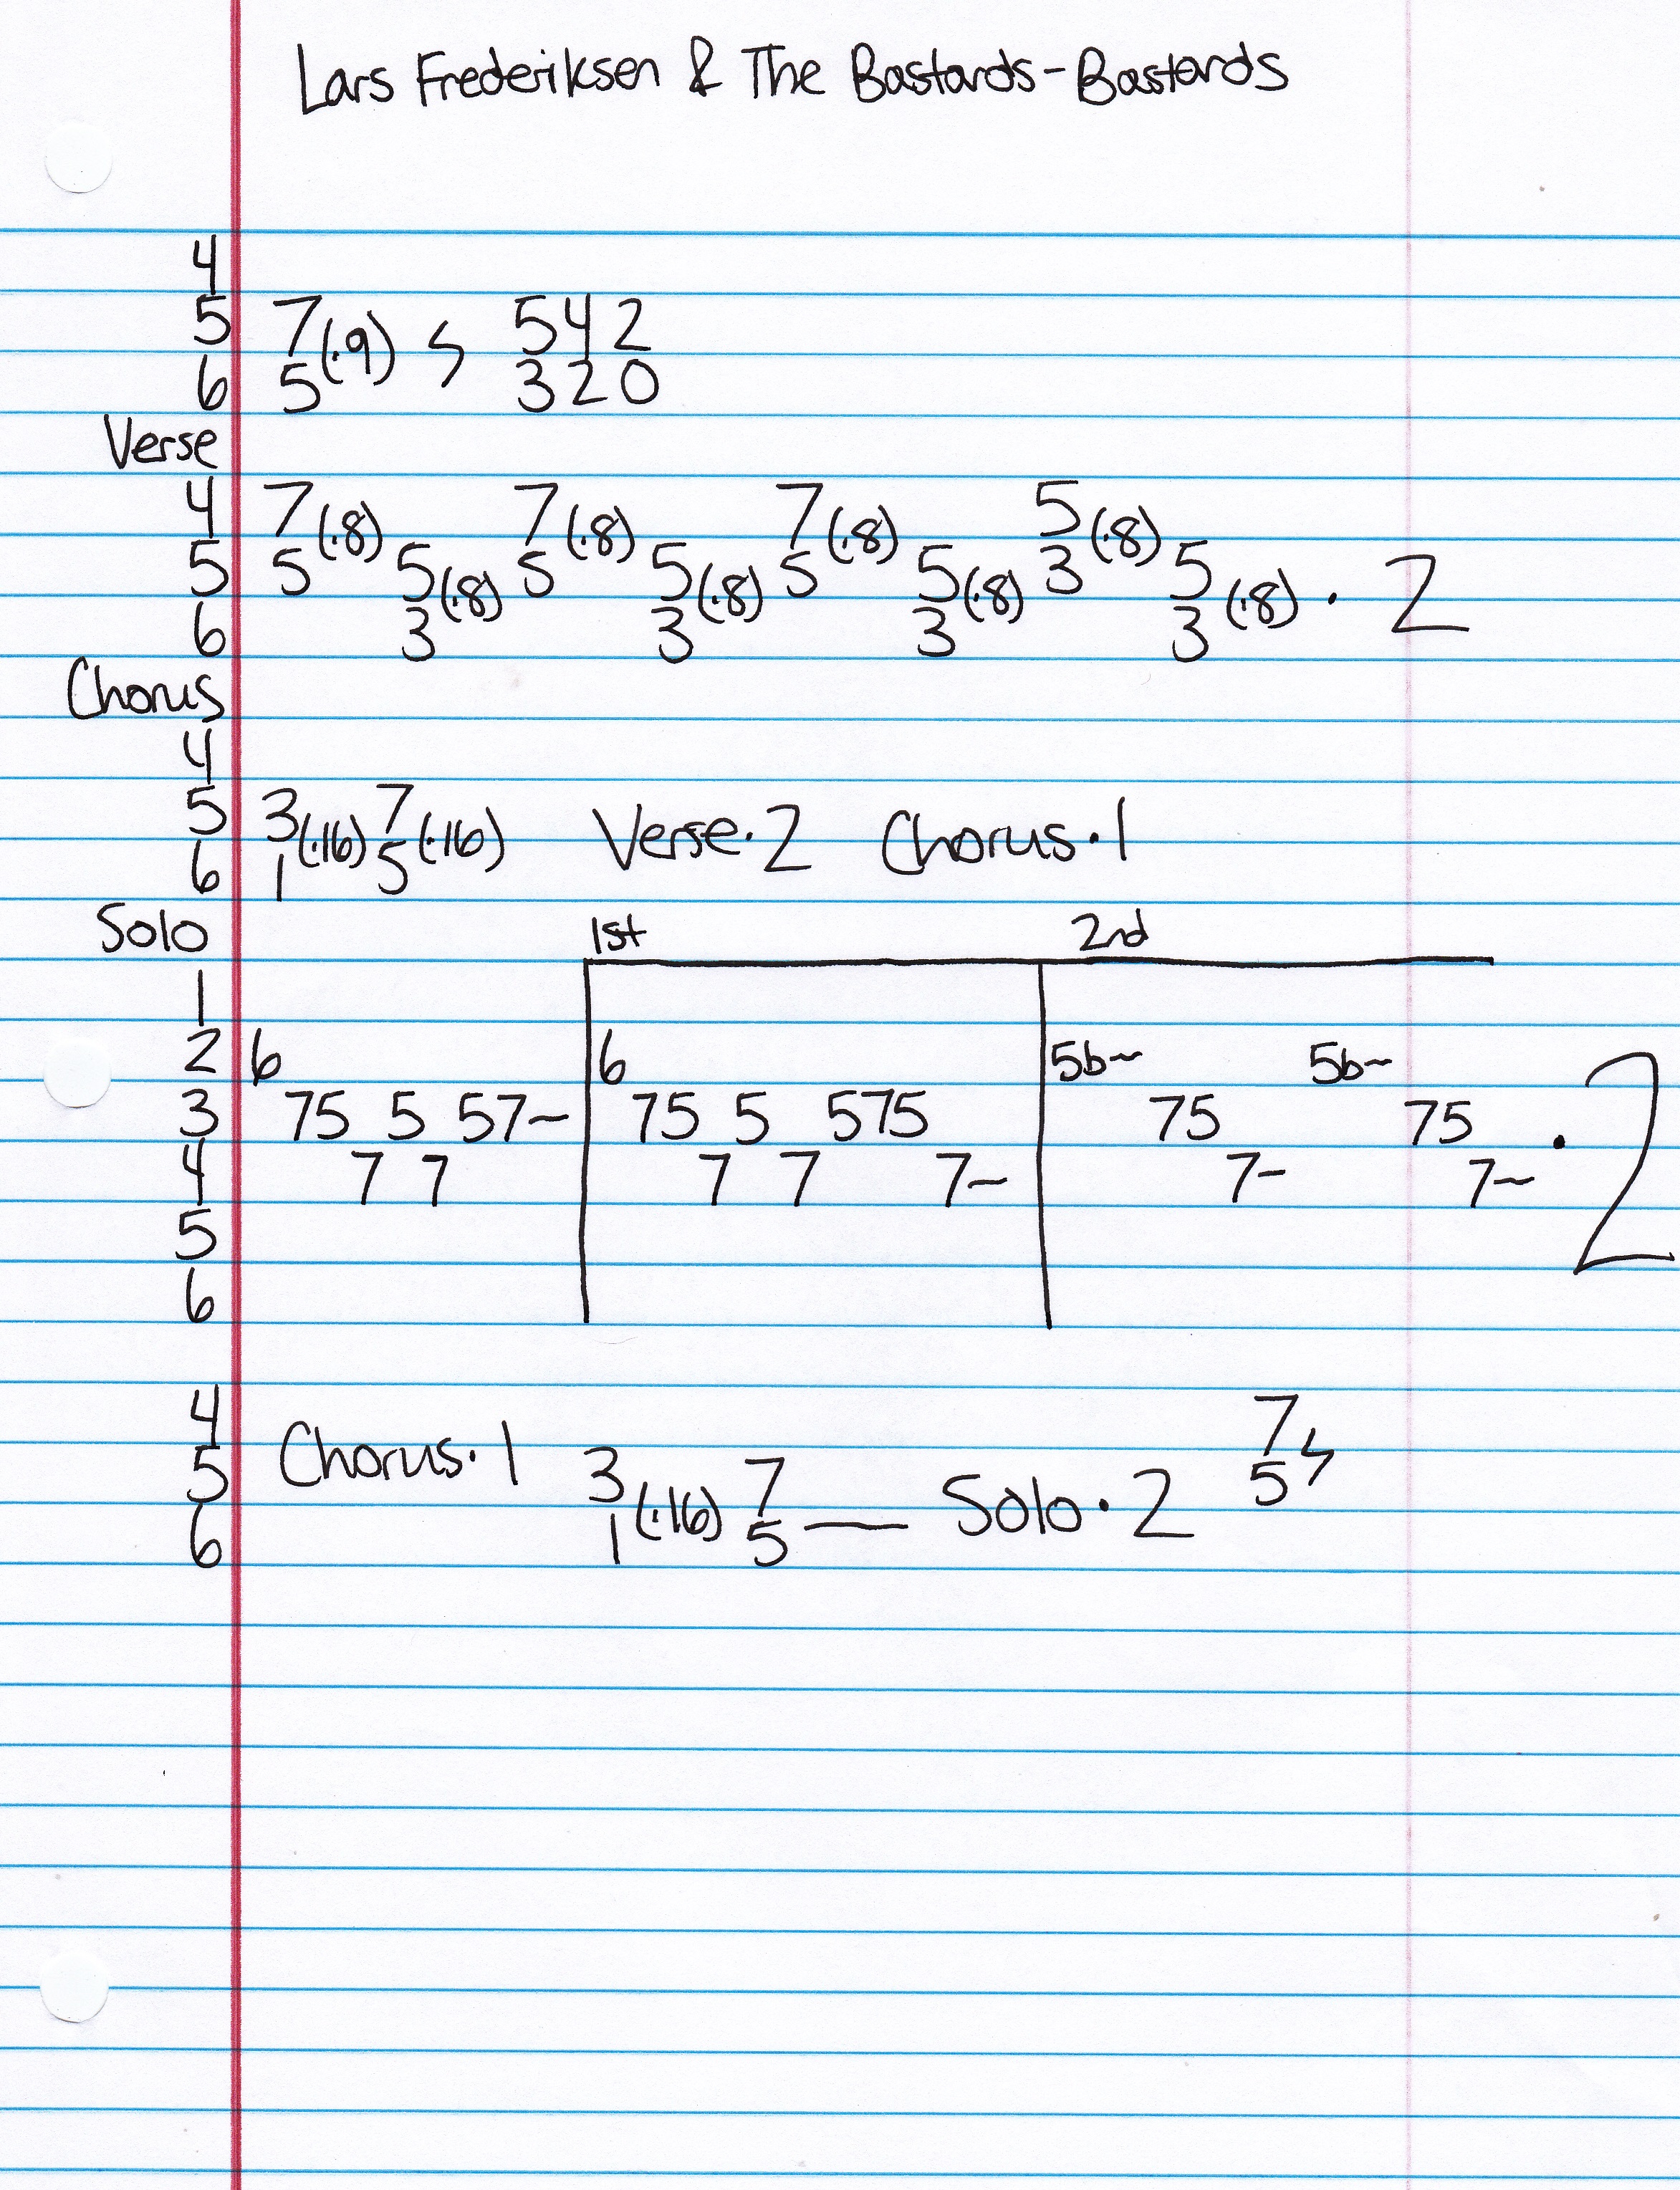 Lars Frederiksen & The Bastards - Bastards
4
5 7 (·9) ϟ 5 4 2
6 5 3 2 0
Verse
4 7 (·8) 7 (·8) 7 (·8) 5 (·8)
5 5 5 (·8) 5 5 (·8) 5 5 (·8) 3 5 (·8) · 2
6 3 3 3 3
Chorus
4
5 3 (·16) 7 (·16) Verse · 2 Chorus · 1
6 1 5
Solo 1st 2nd
1
2 6 6 5b~ 5b~
3 75 5 57~ 75 5 575 75 75 · 2
4 7 7 7 7 7~ 7~ 7~
5
6
4 7 ϟ
5 Chorus · 1 3 (·16) 7 — Solo · 2 5
6 1 5